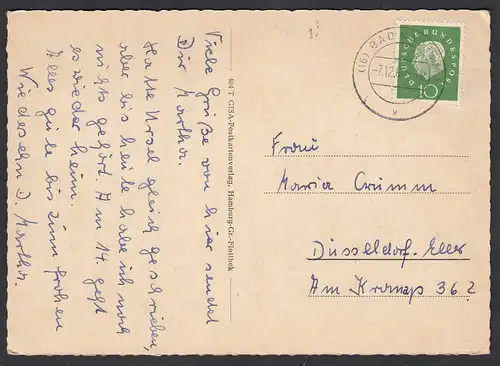 Viele Grüße von hier sendet
Dir Martha.
Hatte Ursel gleich geschrieben,
aber bis heute habe ich noch
nichts gehört. Am 14. geht
es wieder heim.
Alles gute bis zum frohen
Wiedersehn D. Martha.
404 T GISA-Postkartenverlag, Hamburg-Gr.-Flottbek
(16) BAD
-7.12.
DEUTSCHE BUNDESPOST
10
Frau
Maria Crumm
Düsseldorf-Eller
Am Kronap 36 2